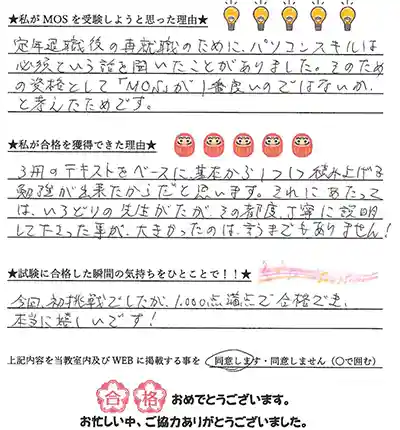 ★私が MOS を受験しようと思った理由★
定年退職後の再就職のために、パソコンスキルは
必須という話を聞いたことがありました。そのため
の資格として「MOS」が1番良いのではないか、
と考えたためです。
★私が合格を獲得できた理由★
3冊のテキストをベースに、基礎から1つ1つ積み上げる
勉強が出来たからだと思います。それにあたって
は、いろどりの先生がたが、その都度、丁寧に説明
して下さった事が、大きかったのは、言うまでもありません!
★試験に合格した瞬間の気持ちをひとことで!!★
今回、初挑戦でしたが、1,000点満点で合格でき、
本当に嬉しいです!
上記内容を当教室内及びWEBに掲載する事を 同意します・同意しません(○で囲む)
合格 おめでとうございます。
お忙しい中、ご協力ありがとうございました。